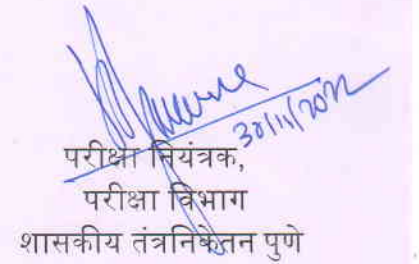 30/11/2022
परीक्षा नियंत्रक,
परीक्षा विभाग
शासकीय तंत्रनिकेतन पुणे